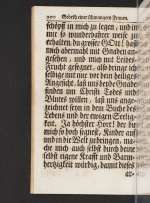 200 Gebeth einer schwangern Person.
schöpff in mich zu legen, und in
mir so wunderbahrer weise zu
erhalten, du grosser GOtt! hast
mich abermahl mit Gnaden an-
gesehen, und mich mit Leibes-
Frucht gesegnet, also bringe ich
selbige mit mir vor dein heiliges
Angesicht, laß uns beyde Gnade
finden um Christi Todes und
Blutes willen, laß uns ange-
zeichnet seyn in dem Buche des
Lebens und der ewigen Seelig-
keit. Ja höchster Herr! der du
mich so hoch segnest, Kinder auf
und in die Welt zu bringen, ma-
che mich auch selbst durch deine
selbst eigene Krafft und Barm-
hertzigkeit würdig, damit dieses